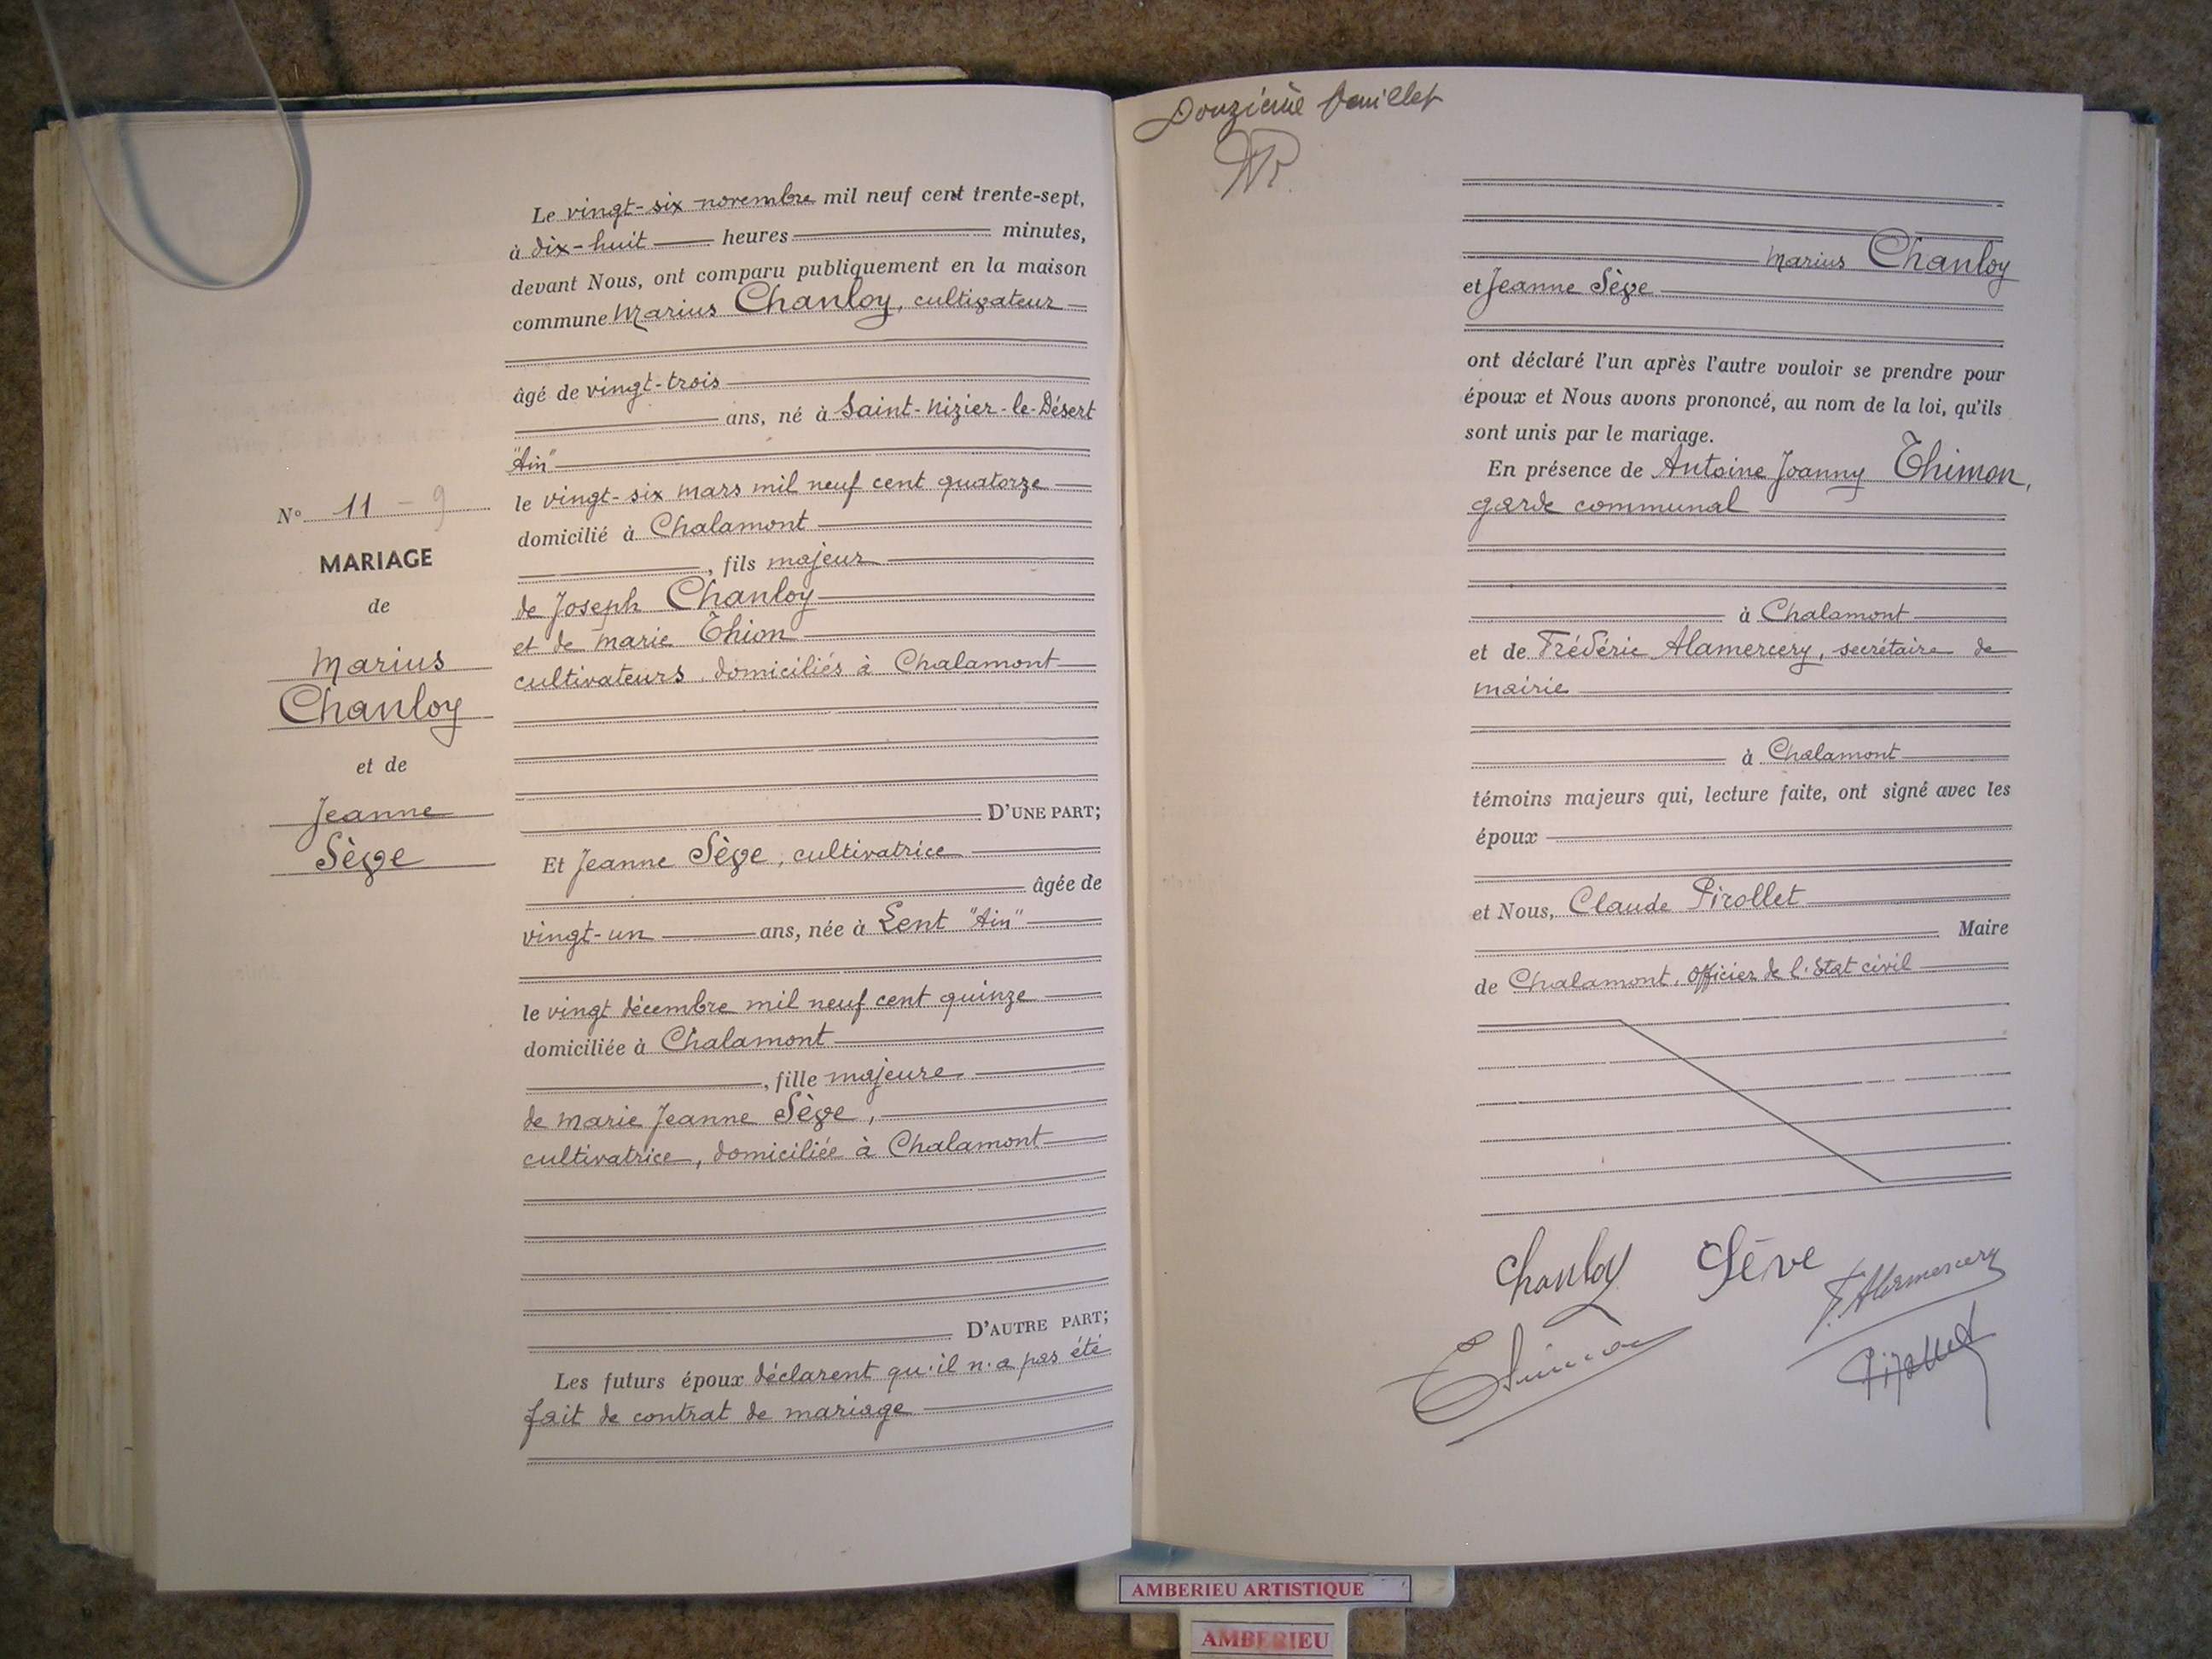 Le vingt-six novembre mil neuf cent trente-sept,
à dix-huit heures minutes,
devant Nous, ont comparu publiquement en la maison
commune Marius Chanloy, cultivateur
âgé de vingt-trois
ans, né à Saint-Nizier-le-Désert
"Ain"
le vingt-six mars mil neuf cent quatorze
domicilié à Chalamont
, fils majeur
de Joseph Chanloy
et de Marie Thion
cultivateurs, domiciliés à Chalamont
D'UNE PART;
Et Jeanne Sève, cultivatrice
âgée de
vingt-un ans, née à Lent "Ain"
le vingt décembre mil neuf cent quinze
domiciliée à Chalamont
, fille majeure
de Marie Jeanne Sève,
cultivatrice, domiciliée à Chalamont
D'AUTRE PART;
Les futurs époux déclarent qu'il n'a pas été
fait de contrat de mariage
N° 11 - 9
MARIAGE
de
Marius
Chanloy
et de
Jeanne
Sève
Douzième feuillet
Marius Chanloy
et Jeanne Sève
ont déclaré l'un après l'autre vouloir se prendre pour
époux et Nous avons prononcé, au nom de la loi, qu'ils
sont unis par le mariage.
En présence de Antoine Joanny Thimon,
garde communal
à Chalamont
et de Frédéric Alamercery, secrétaire de
mairie
à Chalamont
témoins majeurs qui, lecture faite, ont signé avec les
époux
et Nous, Claude Pirollet
Maire
de Chalamont, Officier de l'Etat civil
Chanloy Sève F. Alamercery
Thimon Pirollet
AMBERIEU ARTISTIQUE
AMBERIEU